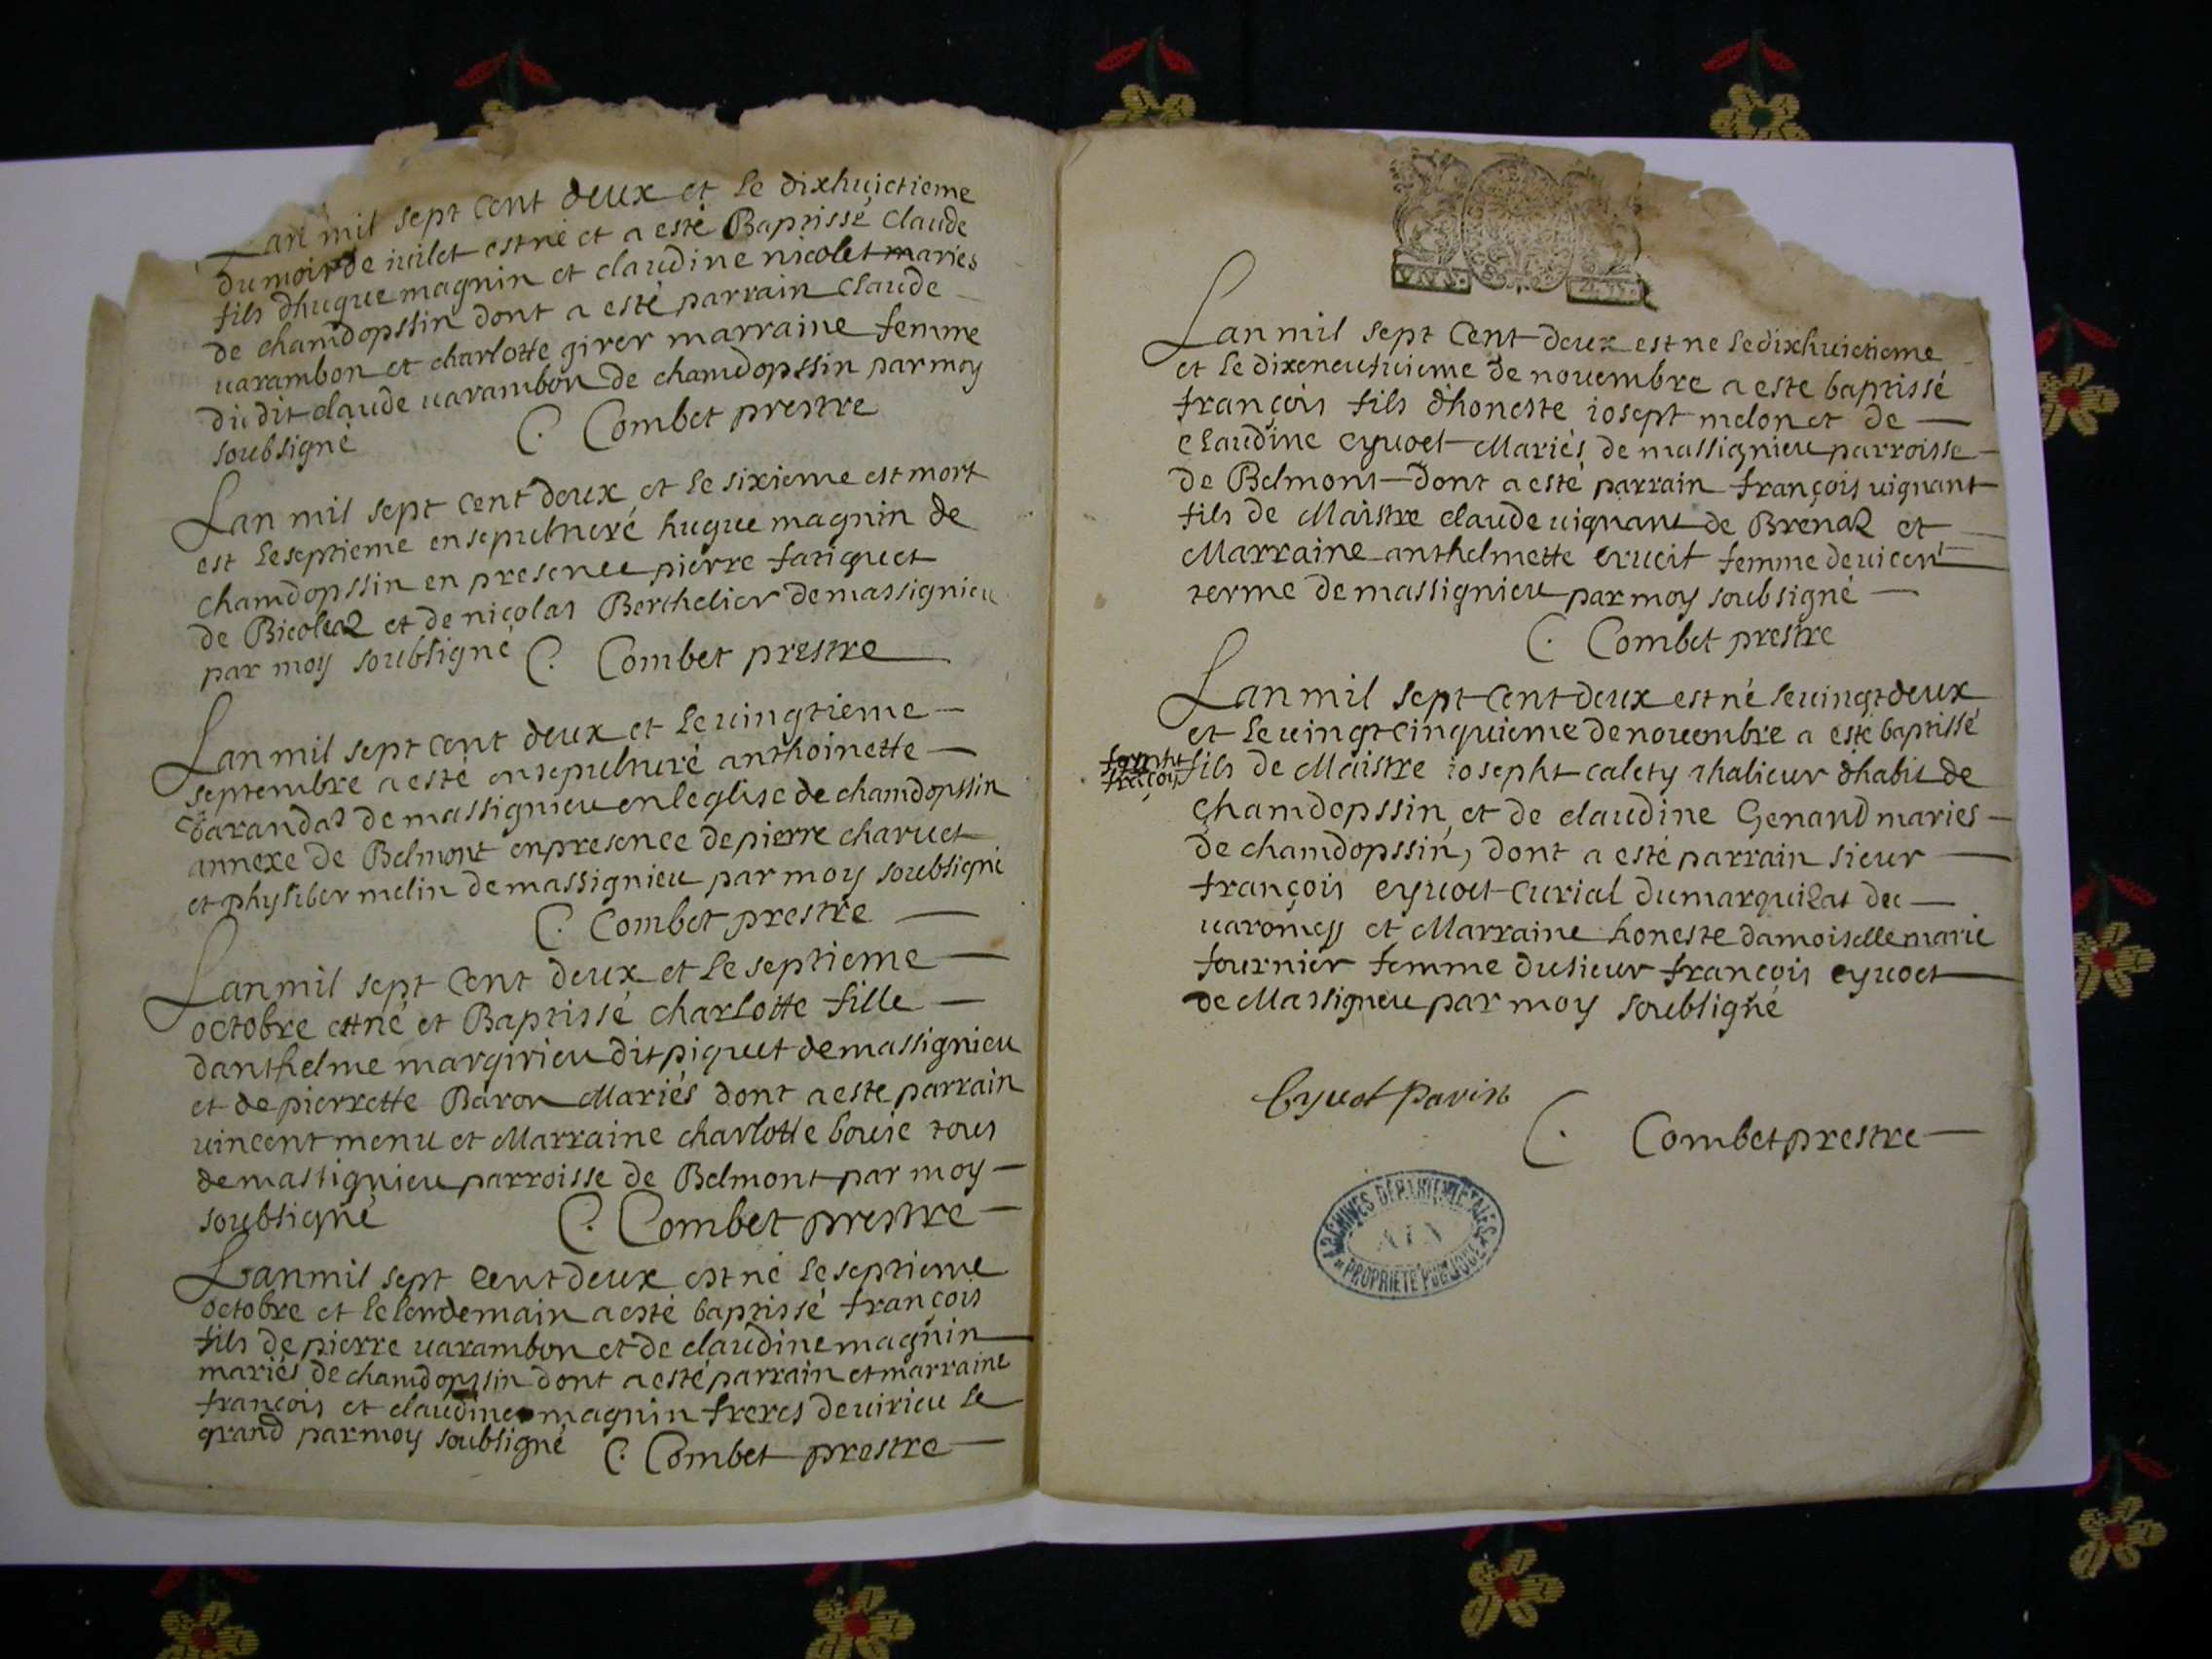 Lan mil sept cent deux et le dixhuictieme
du mois de iuilet est né et a esté Baptissé Claude
fils dhugue magnin et claudine nicolet maries
de chamdopssin dont a esté parrain Claude
uarambon et charlotte girer marraine femme
dudit claude uarambon de chamdopssin par moy
soubsigné C. Combet prestre
Lan mil sept cent deux et le sixieme est mort
est le septieme ensepulturé hugue magnin de
chamdopssin en presence pierre fatiguet
de et de nicolas Berthelier de massignieu
par moy soubsigné C. Combet prestre
Lan mil sept cent deux et le uingtieme
septembre a esté ensepulturé anthoinette
de massignieu en leglise de chamdopssin
annexe de Belmont en presence de pierre charuet
et phyliber melin de massignieu par moy soubsigné
C. Combet prestre
Lan mil sept cent deux et le septieme
octobre est né et Baptissé charlotte fille
danthelme margirieu dit piquet de massignieu
et de pierrette Baron Mariés dont a este parrain
uincent menu et Marraine charlotte bouie tous
de massignieu parroisse de Belmont par moy
soubsigné C. Combet prestre
Lan mil sept cent deux est né le septieme
octobre et le lendemain a esté baptissé françois
fils de pierre uarambon et de claudine magnin
mariés de chamdopssin dont a esté parrain et marraine
françois et claudine magnin freres de uirieu le
grand par moy soubsigné C. Combet prestre
Lan mil sept Cent deux est ne le dixhuictieme
et le dixeneufuieme de nouembre a este baptissé
françois fils dhoneste iosept melon et de
Claudine eyuoet Mariés de massignieu parroisse
de Belmont dont a esté parrain françois uignant
fils de Maistre claude uignant de Brenaz et
Marraine anthelmette femme de uicent
terme de massignieu par moy soubsigné
C. Combet prestre
Lan mil sept cent deux est né le uingt deux
et le uingt cinquieme de nouembre a esté baptissé
fils de Maistre iosepht calety thalieur dhabit de
chamdopssin et de claudine Genand maries
de chamdopssin, dont a esté parrain sieur
françois eyuoet curial du marquizat de
uaromey et Marraine honeste damoiselle marie
fournier femme du sieur françois eyuoet
de Massigneu par moy soubsigné
Eyuot
C. Combet prestre
ARCHIVES DÉPARTEMENTALES
AIN
PROPRIÉTÉ PUBLIQUE